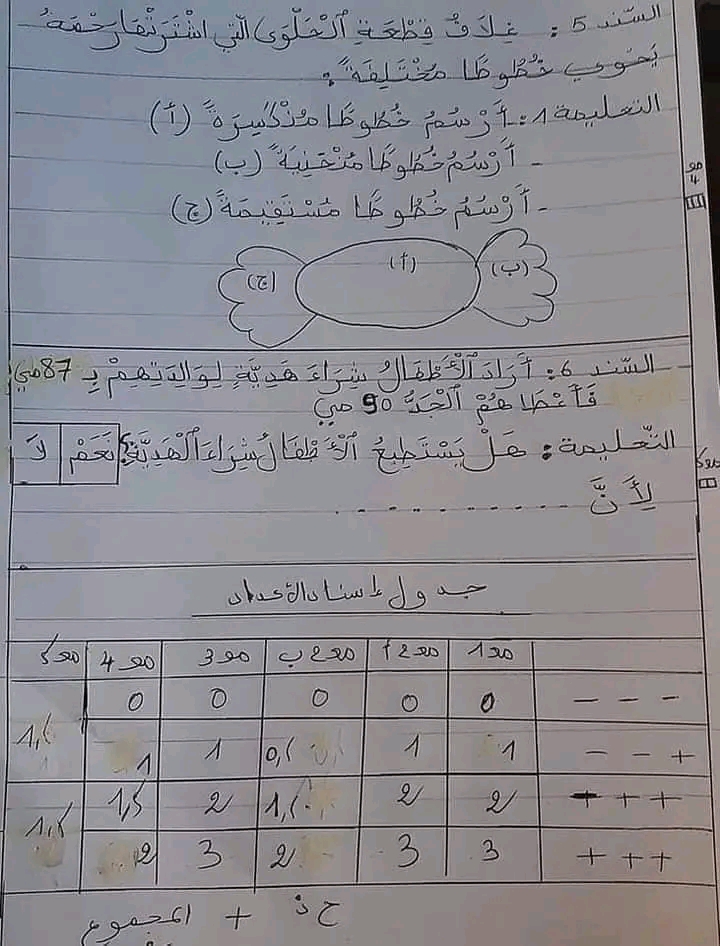 السّند 5 : غِلَافُ قِطْعَةِ ٱلْحَلْوَى الَّتِي اشْتَرَتْهَا رَحْمَةُ
يَحْتوِي خُطُوطًا مُخْتَلِفَةً :
التعليمة 1 : أَرْسُمُ خُطُوطًا مُنْكَسِرَةً (أ)
- أَرْسُمُ خُطُوطًا مُنْحَنِيَةً (ب)
- أَرْسُمُ خُطُوطًا مُسْتَقِيمَةً (ج)
مع 4
(ج) (أ) (ب)
السّند 6 : أَرَادَ ٱلْأَطْفَالُ شِرَاءَ هَدِيَّةٍ لِوَالِدَتِهِمْ بِـ 87 مي
فَأَعْطَاهُمْ ٱلْجَدُّ 90 مي
التّعليمة : هَلْ يَسْتَطِيعُ ٱلْأَطْفَالُ شِرَاءَ ٱلْهَدِيَّةِ؟ نَعَمْ لَا
مع 5
لِأَنَّ . . . . . . . . . .
جدول إسناد الأعداد
مع 1 مع 2 أ مع 2 ب مع 3 مع 4 مع 5
- - - 0 0 0 0 0
- - + 1 1 0,5 1 1 1,5
+ + + 2 2 1,5 2 1,5
+ + + 3 3 2 3 2 1,5
المجموع +